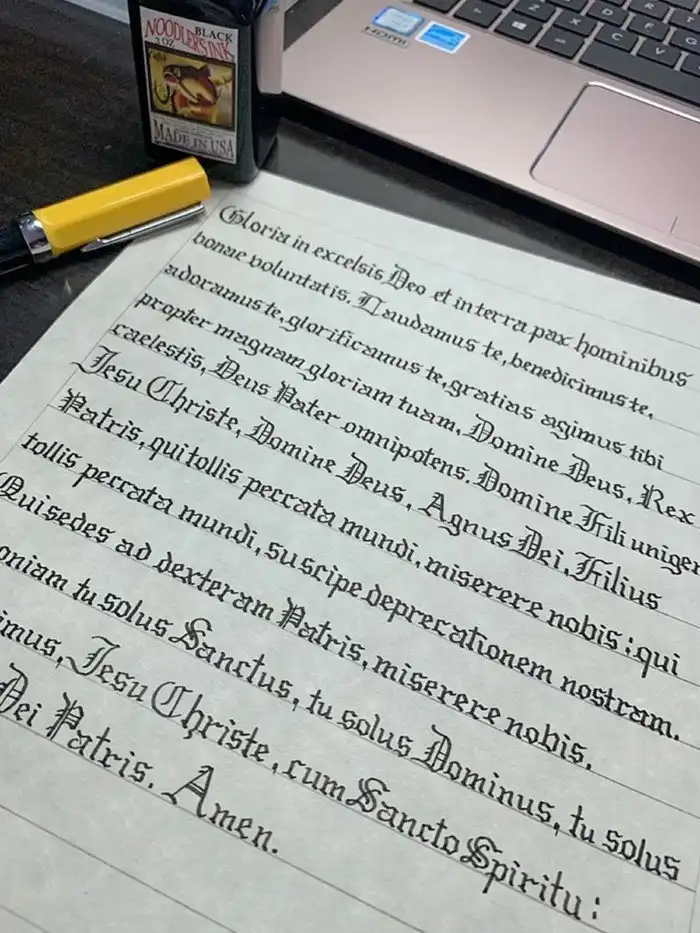 BLACK
NOODLER'S INK
3 OZ
MADE IN USA
HDMI
Gloria in excelsis Deo et in terra pax hominibus
bonae voluntatis. Laudamus te, benedicimus te,
adoramus te, glorificamus te, gratias agimus tibi
propter magnam gloriam tuam, Domine Deus, Rex
caelestis, Deus Pater omnipotens. Domine Fili unigen
Jesu Christe, Domine Deus, Agnus Dei, Filius
Patris, qui tollis peccata mundi, miserere nobis; qui
tollis peccata mundi, suscipe deprecationem nostram.
Qui sedes ad dexteram Patris, miserere nobis.
oniam tu solus Sanctus, tu solus Dominus, tu solus
imus, Jesu Christe, cum Sancto Spiritu:
Dei Patris. Amen.